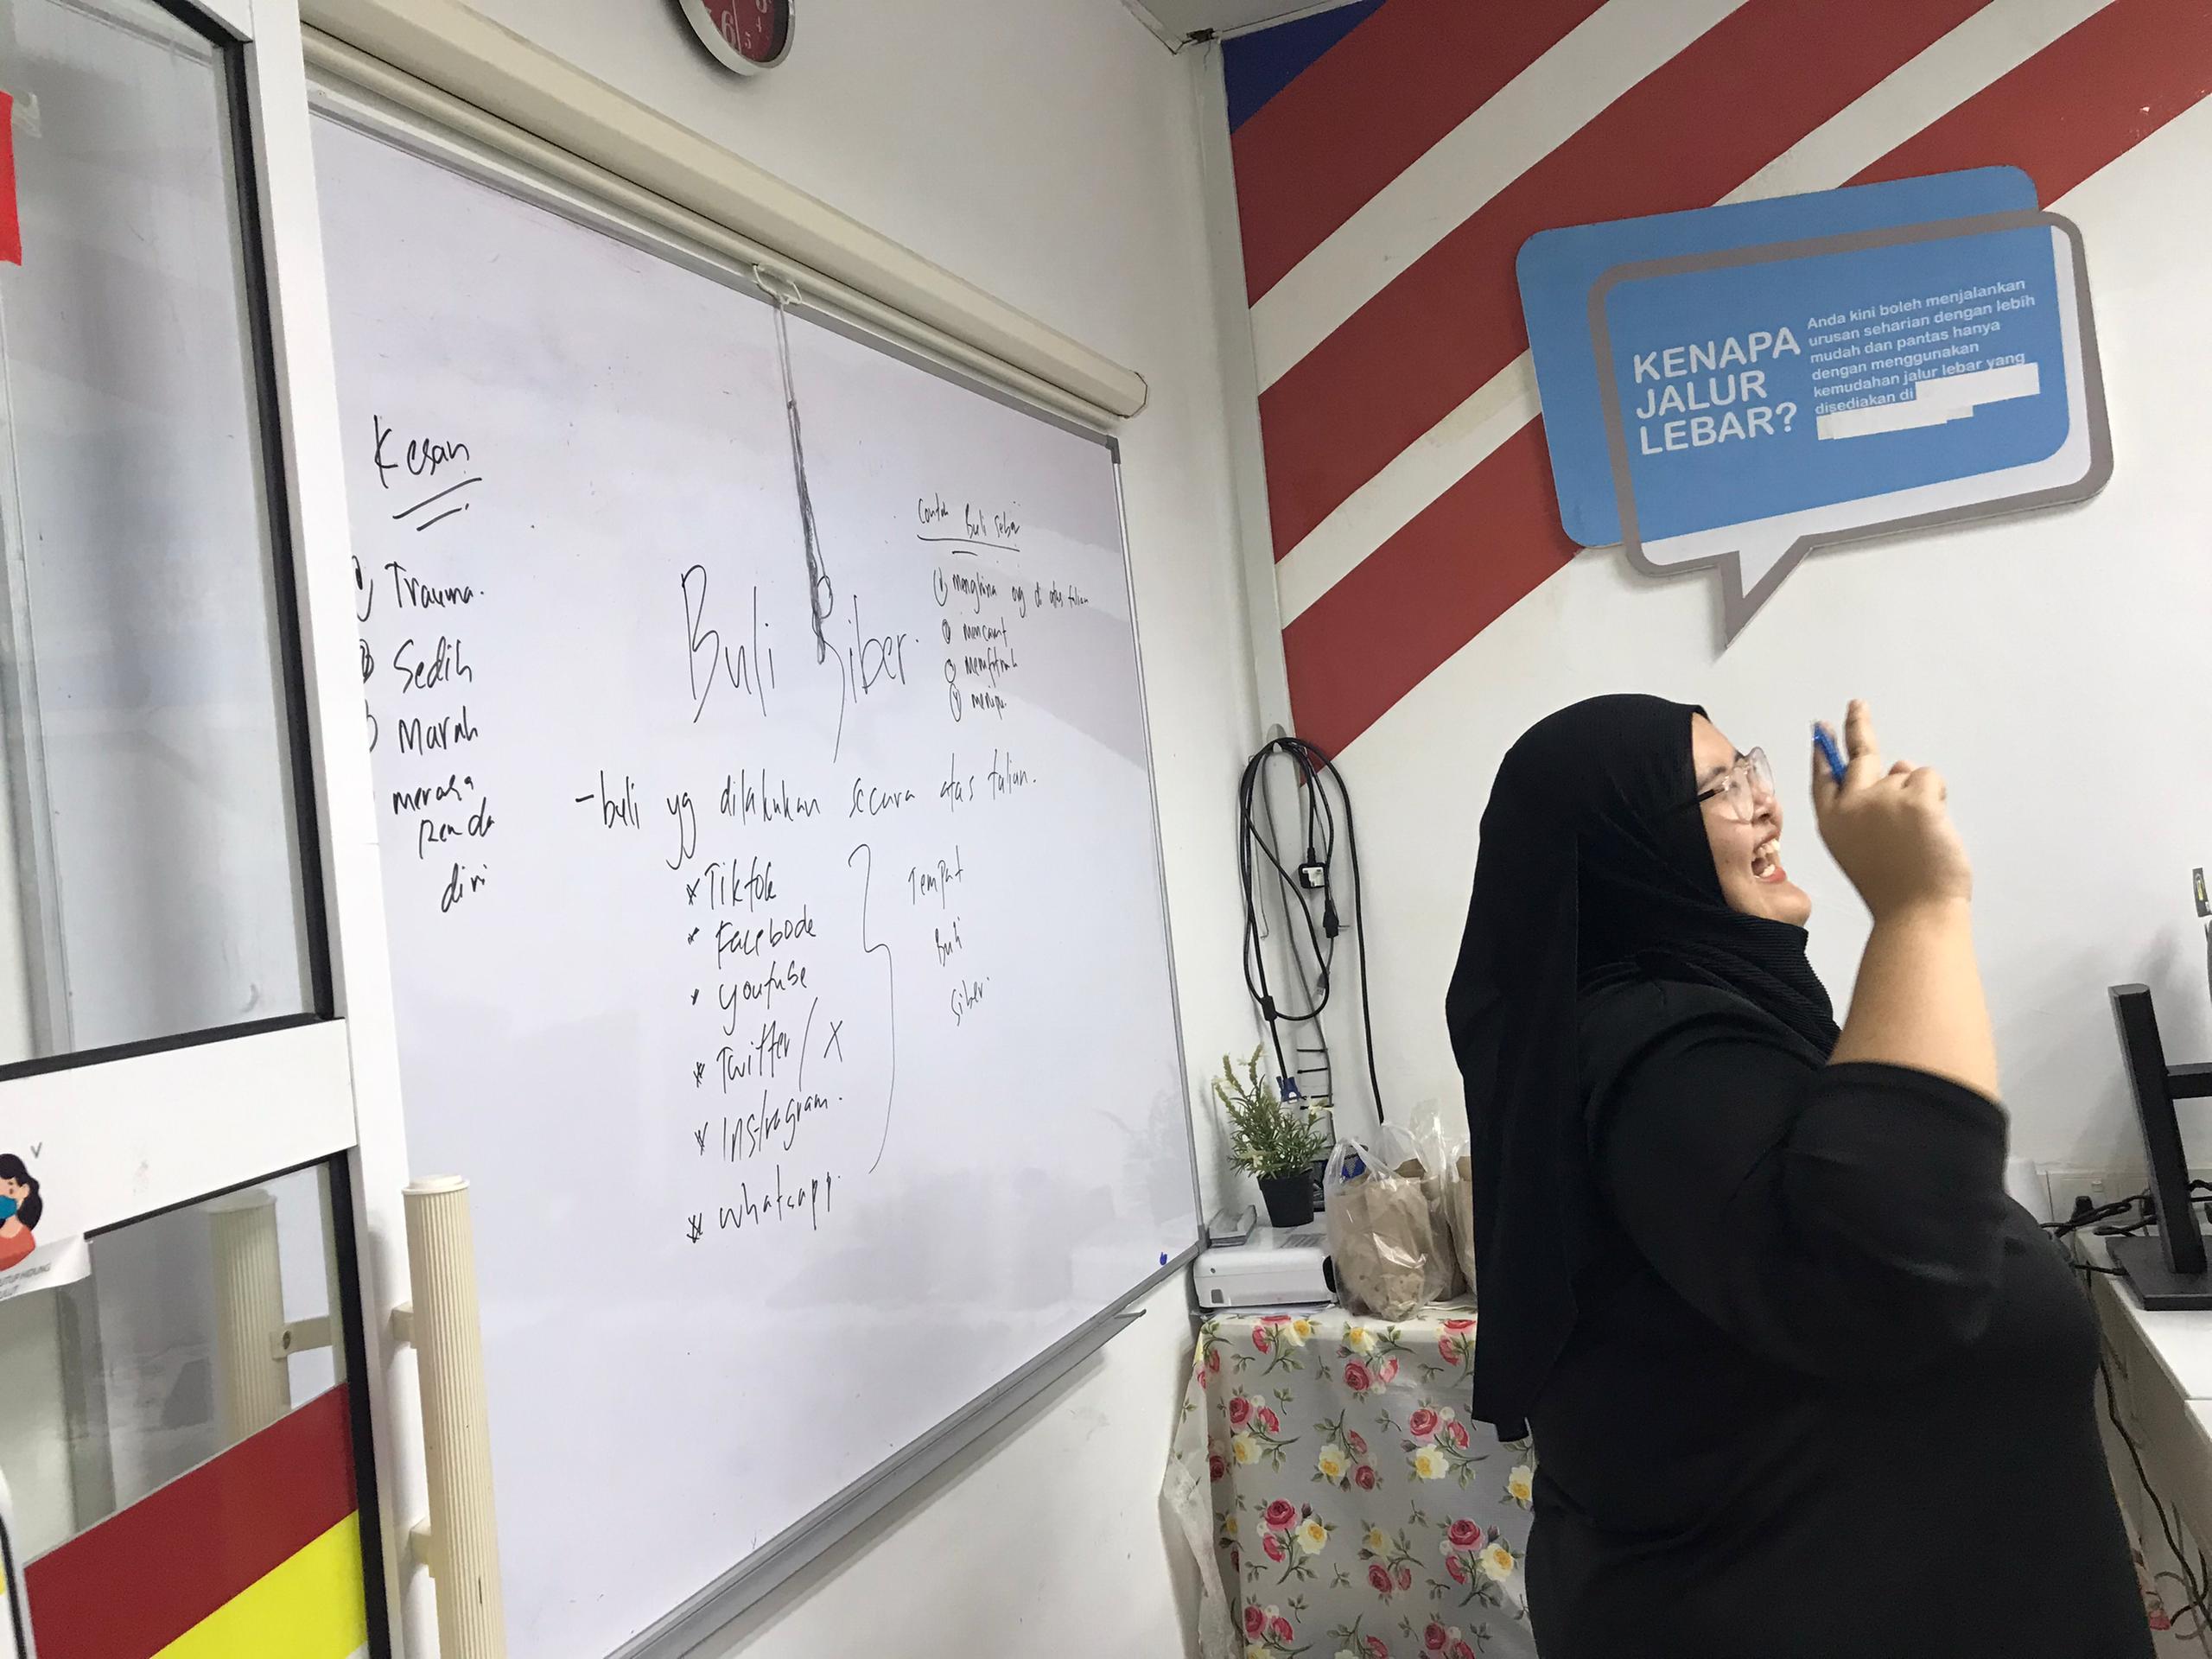 6
5
4
Kesan
Trauma.
Sedih
Marah
merasa
Renda
diri
Buli Siber.
- buli yg dilakukan secara atas talian.
* Tiktok
* Facebook
* youtube
* Twitter / X
* Instragram.
* whatsapp.
Tempat
Buli
Siber
Contoh Buli Seba
① menghina org di atas talian
② mencarut
③ memfitnah
④ menipu.
KENAPA
JALUR
LEBAR?
Anda kini boleh menjalankan
urusan seharian dengan lebih
mudah dan pantas hanya
dengan menggunakan
kemudahan jalur lebar yang
disediakan di